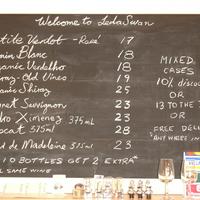 Welcome to LedaSwan
tite Verdot - Rosé 17
nin Blanc 18
ganic Verdelho 18
iraz - Old Vines 19
anic Shiraz 25
net Sauvignon 23
dro Ximenez 375ml 23
ocat 375ml 28
t de Madeleine 375ml 23
10 BOTTLES GET 2 EXTRA*
ALL SAME WINE
MIXED
CASES
10% discou
OR
13 TO THE
OR
FREE DELIV
ANY WHERE IN